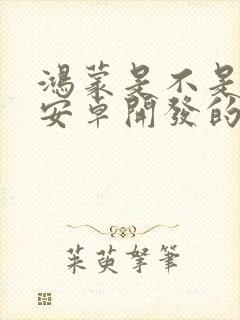 鴻蒙是不是
安卓開發的
茱萸拏筆